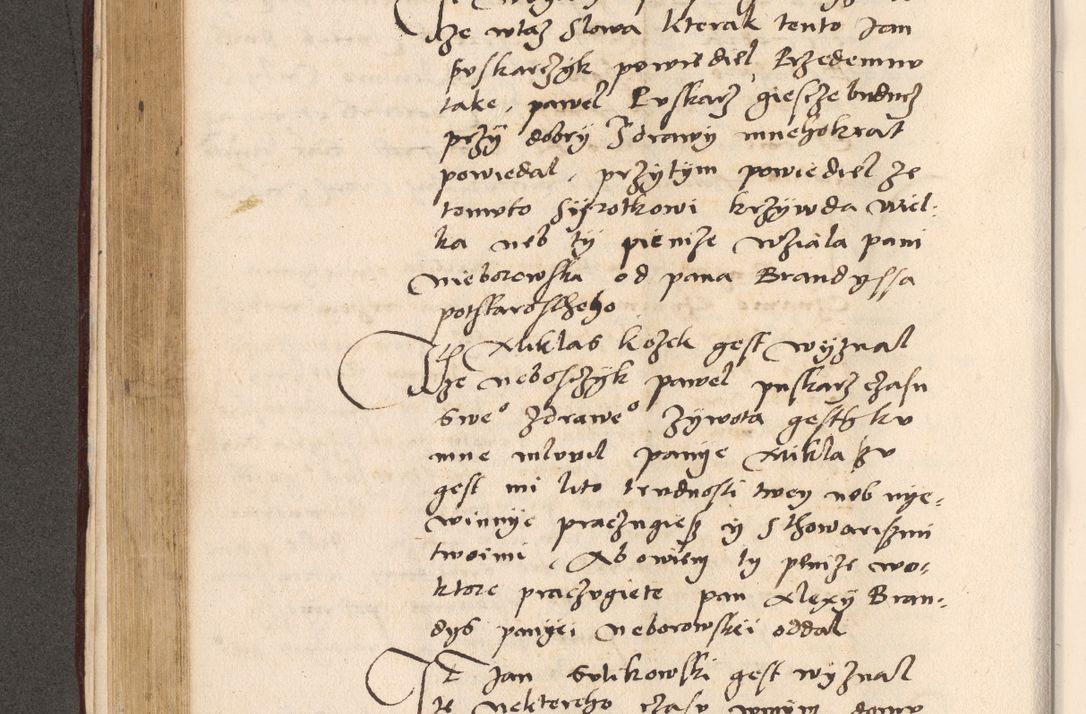 że wtaz slowa kterak tento Jan
puskarzyk powiediel Przedemnu
take, pawel Puskarz giescze buducz
przy dobry Zdrawy mnehokrat
powiedal, przytym powiediel że
tomuto Syrotkowi krzywda wiel-
ka neb ty pienize wziala pani
Nieborowska od pana Brandyssa
potstaroscheho
It Miklas kozek gest wyznal
że neboszczyk pawel puskarz czasu
sweo zdraweo żywota gestG ku
mne mluvil panye Miklaszu
gest mi lito trudnosti twey neb nye-
winnye pracugiesz y s thowariszmi
twoimi, Abowiem ty penize wo-
ktore pracugiete pan Alexy Bran-
dys panyei Neborowskei oddal
It Jan Sulikowski gest wyznal
że nektereho czasu wmym domu